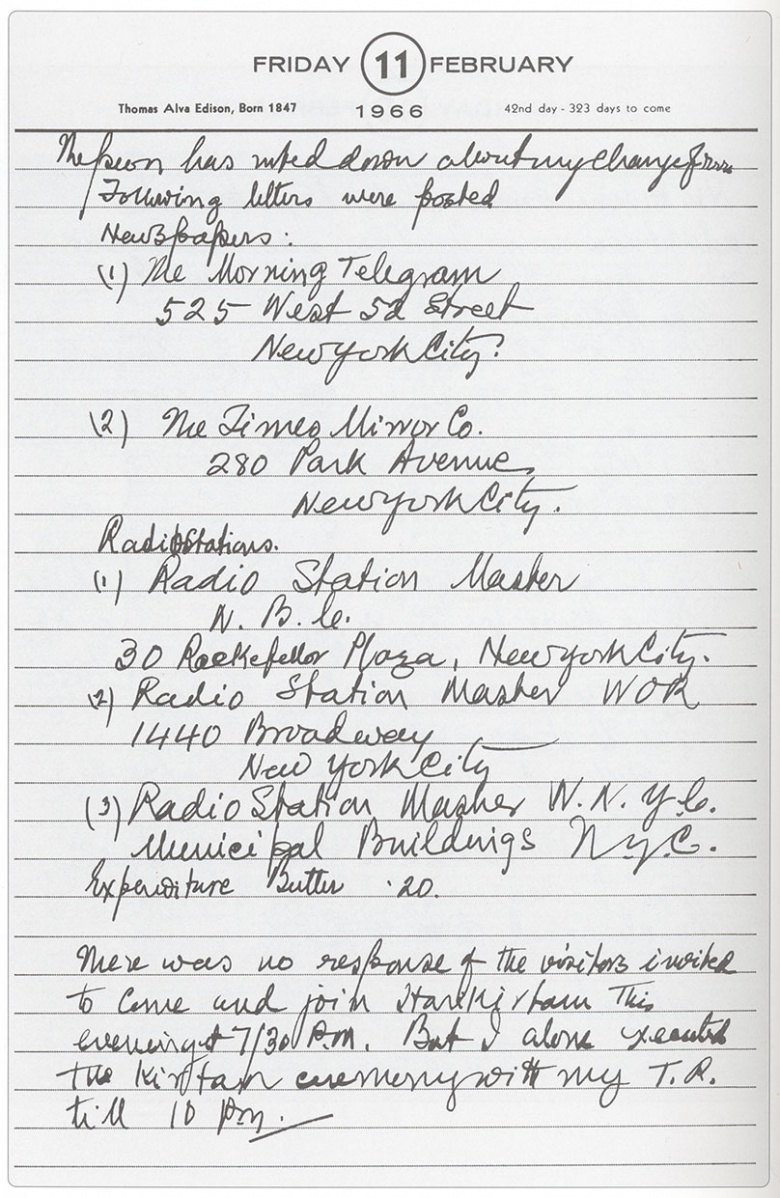 FRIDAY 11 FEBRUARY
Thomas Alva Edison, Born 1847 1966 42nd day - 323 days to come
The peon has noted down about my change from
Following letters were posted
Newspapers:
(1) The Morning Telegram
525 West 52 Street
New York City.
(2) The Times Mirror Co.
280 Park Avenue,
New York City.
Radio Stations.
(1) Radio Station Master
N. B. C.
30 Rockefellor Plaza, New York City.
(2) Radio Station Master WOR
1440 Broadway
New York City
(3) Radio Station Master W. N. Y. C.
Municipal Buildings N.Y.C.
Expenditure Butter .20.
There was no response of the visitors invited
to come and join Harikirtan This
evening at 7/30 P.M. But I alone executed
the Kirtan ceremony with my T.R.
till 10 P.M.